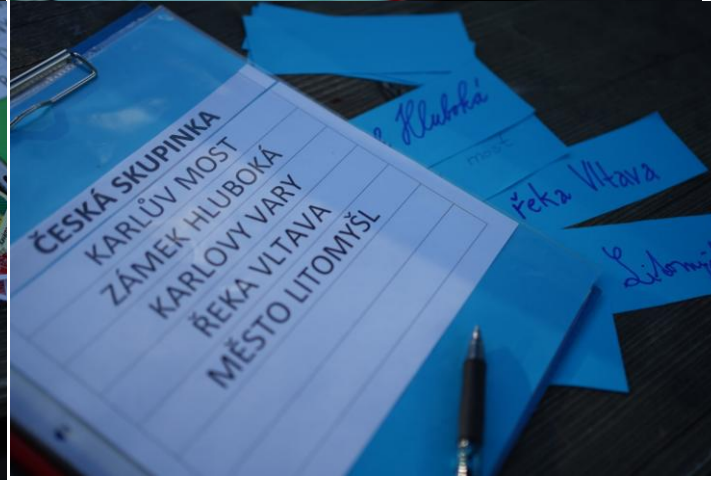 ČESKÁ SKUPINKA
KARLŮV MOST
ZÁMEK HLUBOKÁ
KARLOVY VARY
ŘEKA VLTAVA
MĚSTO LITOMYŠL
Hluboká
most
řeka Vltava